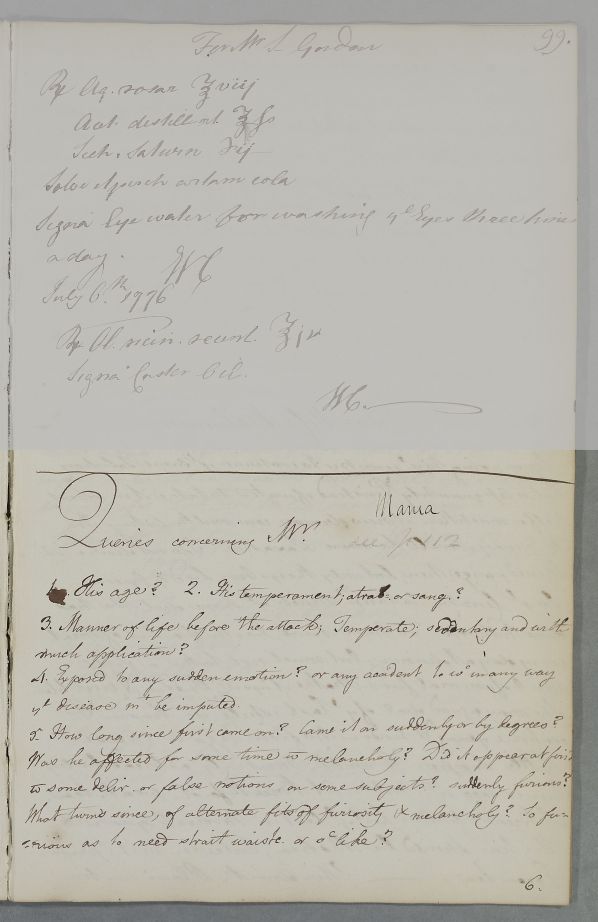 For Mr S Gordon
99.
Rx Aq. rosar ℥viij
Acet. distillat ℥ſs
Sach. Saturn ʒij
Solve et per ch artam cola
Signa Eye water for washing yᵉ Eyes three times
a day. WC
July 6.th 1776
Rx Ol. ricin. recent. ℥iv
Signa Castor Oil.
WC.
Mania
Queries concerning Mr.
1. His age? 2. His temperament; atrab. or sang.?
3. Manner of life before the attack; Temperate; sedentary and with
much application?
4. Exposed to any sudden emotion? or any accident to wc in any way
yt disease mt be imputed.
5. How long since first came on? Came it on suddenly or by degrees?
Was he affected for some time w melancholy? Did it appear at first
w some delir. or false notions on some subjects? suddenly furious?
What turns since, of alternate fits of furiosity & melancholy? So fu-
-rious as to need strait waistc. or ye like?
6.